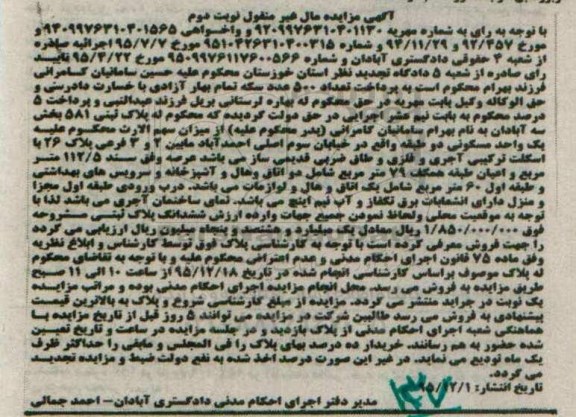 آگهی مزایده مال غیر منقول نوبت دوم
با توجه به رای به شماره مهریه ۹۲۰۹۹۷۶۳۱۰۴۰۱۱۳۰ و واخواهی ۹۴۰۹۹۷۶۳۱۰۴۰۱۵۶۵
مورخ ۹۲/۴۵۷ و ۹۴/۱۱/۲۹ و شماره ۹۵۱۰۴۲۶۳۱۰۴۰۰۳۱۵ مورخ ۹۵/۷/۷ اجرائیه صادره
از شعبه ۴ حقوقی دادگستری آبادان و شماره ۹۵۰۹۹۷۶۱۱۷۶۰۰۵۶۶ مورخ ۹۵/۴/۲۲ تایید
رای صادره از شعبه ۵ دادگاه تجدید نظر استان خوزستان محکوم علیه حسین سامانیان کامرانی
فرزند بهرام محکوم است به پرداخت تعداد ۵۰۰ عدد سکه تمام بهار آزادی با خسارت دادرسی و
حق الوکاله وکیل بابت مهریه در حق محکوم له بهاره لرستانی بریل فرزند عبدالنبی و پرداخت ۵
درصد محکوم به بابت نیم عشر اجرایی در حق دولت گردیده که محکوم له پلاک ثبتی ۵۸۱ بخش
سه آبادان به نام بهرام سامانیان کامرانی (پدر محکوم علیه) از میزان سهم الارث محکوم علیه
یک واحد مسکونی دو طبقه واقع در خیابان سوم اصلی احمدآباد مابین ۲ و ۳ فرعی پلاک ۲۶ با
اسکلت ترکیبی آجری و فلزی و طاق ضربی قدیمی ساز می باشد عرصه وفق سند ۱۱۲/۵ متر
مربع و اعیان طبقه همکف ۷۹ متر مربع شامل دو اتاق وهال و آشپزخانه و سرویس های بهداشتی
و طبقه اول ۶۰ متر مربع شامل یک اتاق و هال و لوازمات می باشد. درب ورودی طبقه اول مجزا
و منزل دارای انشعابات برق تکفاز و آب نیم اینچ می باشد. نمای ساختمان آجری می باشد لذا با
توجه به موقعیت محلی ولحاظ نمودن جمیع جهات وارده ارزش ششدانگ پلاک ثبتی مشروحه
فوق ۱/۸۵۰/۰۰۰/۰۰۰ ریال معادل یک میلیارد و هشتصد و پنجاه میلیون ریال ارزیابی می گردد
را جهت فروش معرفی کرده است با توجه به کارشناسی پلاک فوق توسط کارشناس و ابلاغ نظریه
وفق ماده ۷۵ قانون اجرای احکام مدنی و عدم اعتراض محکوم علیه و با توجه به تقاضای محکوم
له پلاک موصوف براساس کارشناسی انجام شده در تاریخ ۹۵/۱۲/۱۸ از ساعت ۱۰ الی ۱۱ صبح
طریق مزایده به فروش می رسد. محل انجام مزایده اجرای احکام مدنی بوده و مراتب مزایده
یک نوبت در جراید منتشر می گردد. مزایده از مبلغ کارشناسی شروع و پلاک به بالاترین قیمت
پیشنهادی به فروش می رسد طالبین شرکت در مزایده می توانند ۵ روز قبل از تاریخ مزایده با
هماهنگی شعبه اجرای احکام مدنی از پلاک بازدید و در جلسه مزایده در ساعت و تاریخ تعیین
شده حضور به هم رسانند. خریدار ده درصد بهای پلاک را فی المجلس و مابقی را حداکثر ظرف
یک ماه تودیع می نماید. در غیر این صورت درصد اخذ شده به نفع دولت ضبط و مزایده تجدید
می گردد.
تاریخ انتشار: ۹۵/۱۲/۱
مدیر دفتر اجرای احکام مدنی دادگستری آبادان- احمد جمالی